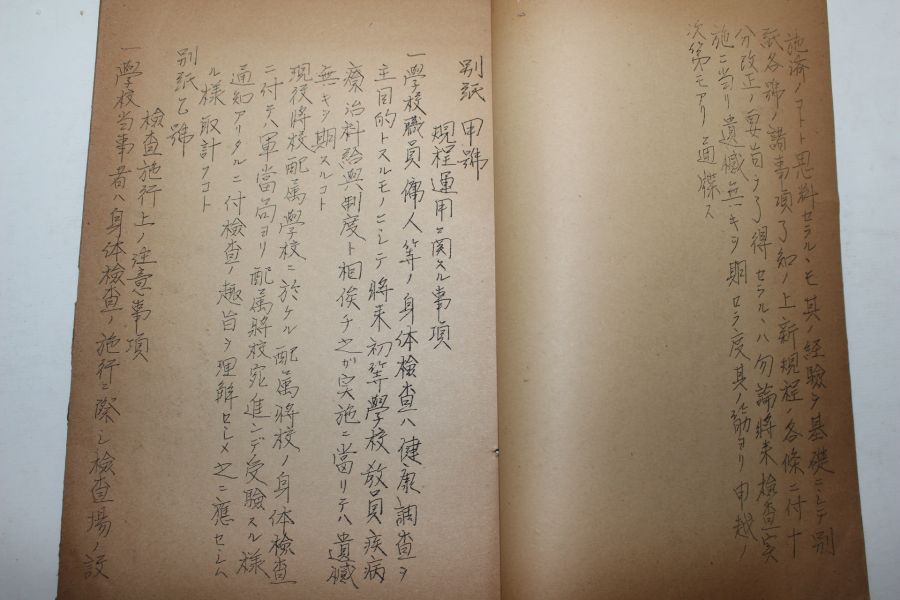 施済ノコトト思料セラルヽモ其ノ経験ヲ基礎ニシテ別
紙各號ノ諸事項了知ノ上新規程ノ各條ニ付十
分改正ノ要旨ヲ了得セラルヽハ勿論將来検査実
施ニ当リ遺憾無キヲ期セラレ度其ノ筋ヨリ申越ノ
次第モアリ通牒ス
別紙 甲號
規程運用ニ関スル事項
一學校職員傭人等ノ身体検査ハ健康調査ヲ
主目的トスルモノニシテ將来初等學校教員疾病
療治料給與制度ト相俟チ之ガ実施ニ當リテハ遺憾
無キヲ期スルコト
現役將校配属學校ニ於ケル配属將校ノ身体検査
ニ付テハ軍當局ヨリ配属將校宛進ンデ受験スル様
通知アリタルニ付検査ノ趣旨ヲ理解セシメ之ニ應セシム
ル様取計フコト
別紙乙號
検査施行上ノ注意事項
一學校当事者ハ身体検査ノ施行ニ際シ検査場ノ設